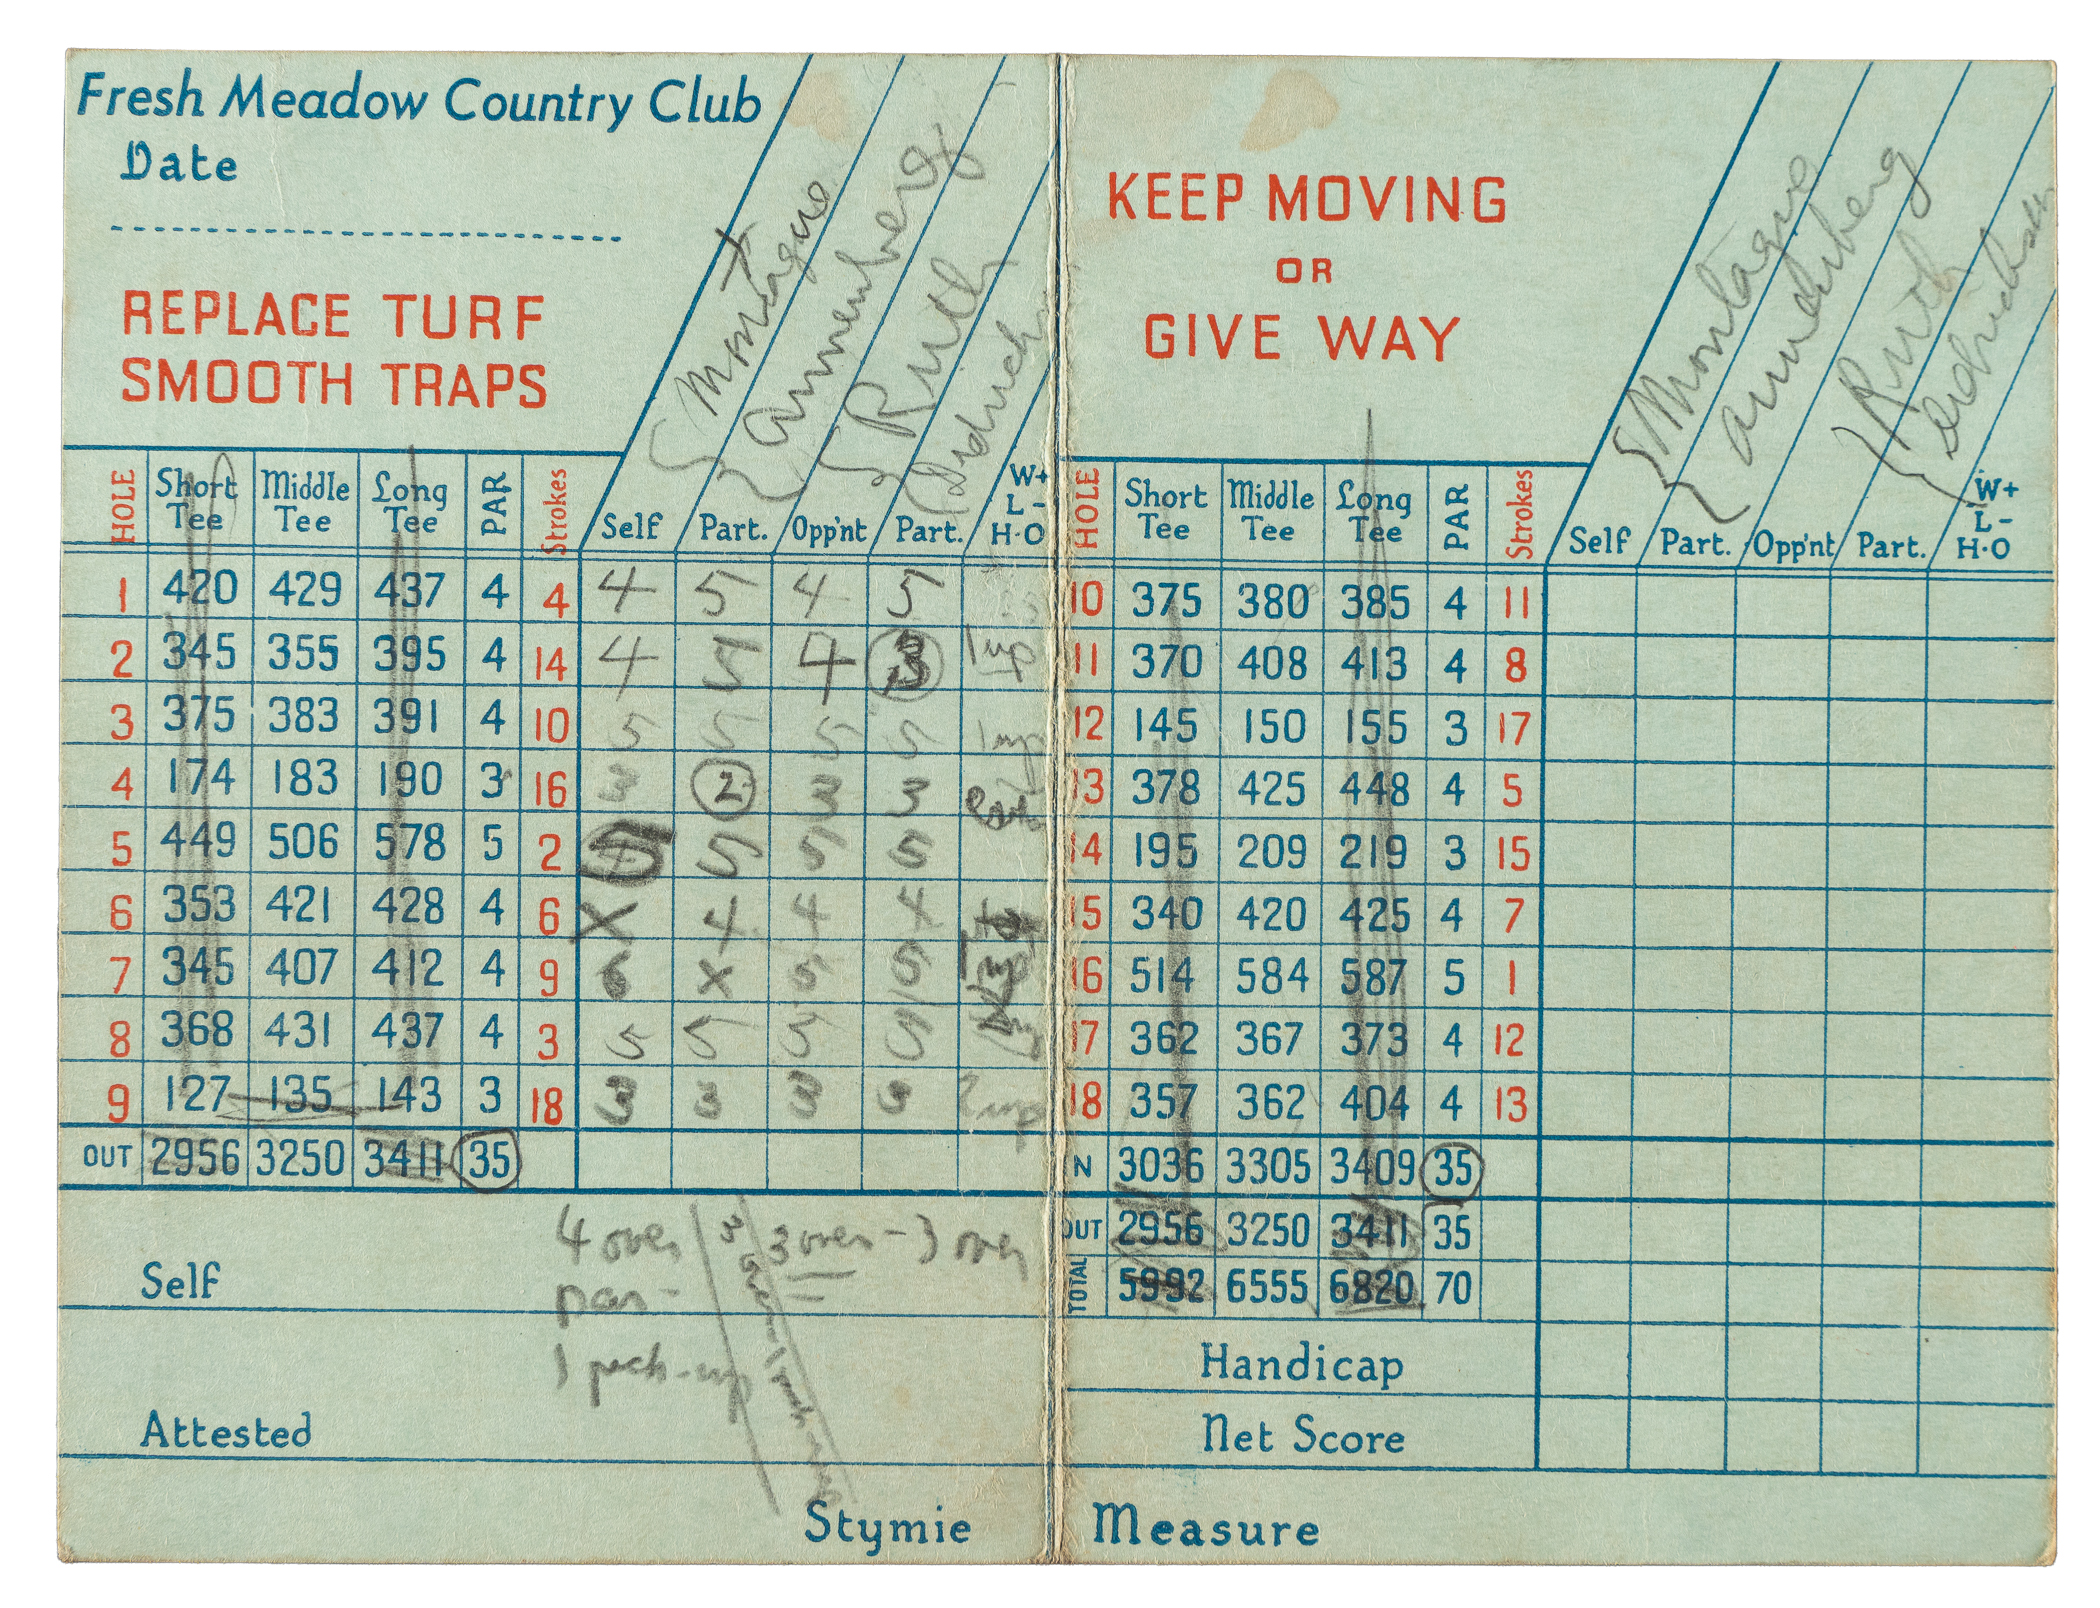 Fresh Meadow Country Club
Date
REPLACE TURF
SMOOTH TRAPS
Montague
Annenberg
Ruth
HOLE Short Tee Middle Tee Long Tee PAR Strokes Self Part. Opp'nt Part. W+ L- H-O
1 420 429 437 4 4 4 5 4 5
2 345 355 395 4 14 4 5 4 3 1 up
3 375 383 391 4 10 5 5 5 5 1 up
4 174 183 190 3 16 3 2 3 3
5 449 506 578 5 2 5 5 5 5
6 353 421 428 4 6 X 4 4 4
7 345 407 412 4 9 6 X 5 5
8 368 431 437 4 3 5 5 5 5
9 127 135 143 3 18 3 3 3 3 2 up
OUT 2956 3250 3411 35
4 over 3 over - 3 over
Self
par -
1 pick-up
Attested
Stymie
KEEP MOVING
OR
GIVE WAY
Montague
Ruth
HOLE Short Tee Middle Tee Long Tee PAR Strokes Self Part. Opp'nt Part. W+ L- H-O
10 375 380 385 4 11
11 370 408 413 4 8
12 145 150 155 3 17
13 378 425 448 4 5
14 195 209 219 3 15
15 340 420 425 4 7
16 514 584 587 5 1
17 362 367 373 4 12
18 357 362 404 4 13
N 3036 3305 3409 35
OUT 2956 3250 3411 35
TOTAL 5992 6555 6820 70
Handicap
Net Score
Measure